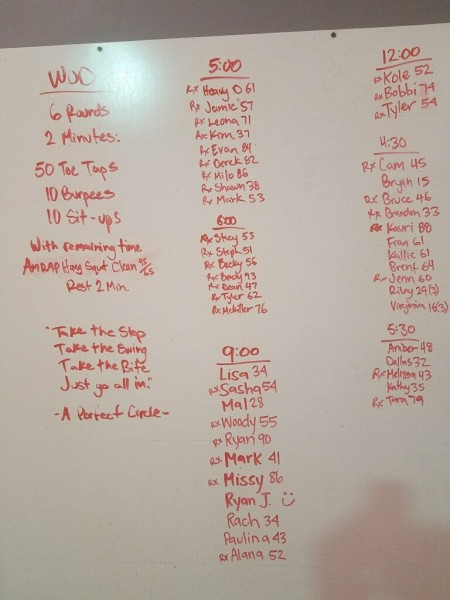 WOD
6 Rounds
2 Minutes:
50 Toe Taps
10 Burpees
10 Sit-ups
With remaining time
AMRAP Hang Squat Clean 95/65
Rest 2 Min.
"Take the Step
Take the Swing
Take the Bite
Just go all in."
-A Perfect Circle-
5:00
Rx Heavy D 61
Rx Jamie 57
Rx Leona 71
Rx Kim 37
Rx Evan 84
Rx Derek 82
Rx Milo 86
Rx Shawn 38
Rx Mark 53
6:00
Rx Stacy 55
Rx Steph 51
Rx Becky 56
Rx Brody 93
Rx Dean 47
Rx Tyler 62
Rx McKiller 76
9:00
Lisa 34
Rx Sasha 54
Mal 28
Rx Woody 55
Rx Ryan 90
Rx Mark 41
Rx Missy 86
Ryan J. :)
Rach 34
Paulina 43
Rx Alana 52
12:00
Rx Kole 52
Rx Bobbi 74
Rx Tyler 54
4:30
Rx Cam 45
Bryan 15
Rx Bruce 46
Rx Brandon 33
Rx Kauri 88
Fran 61
Kallie 61
Brent 64
Rx Jenn 60
Riley 29(3)
Virginia 16(3)
5:30
Amber 48
Dallas 32
Rx Melissa 43
Kathy 35
Rx Tara 79